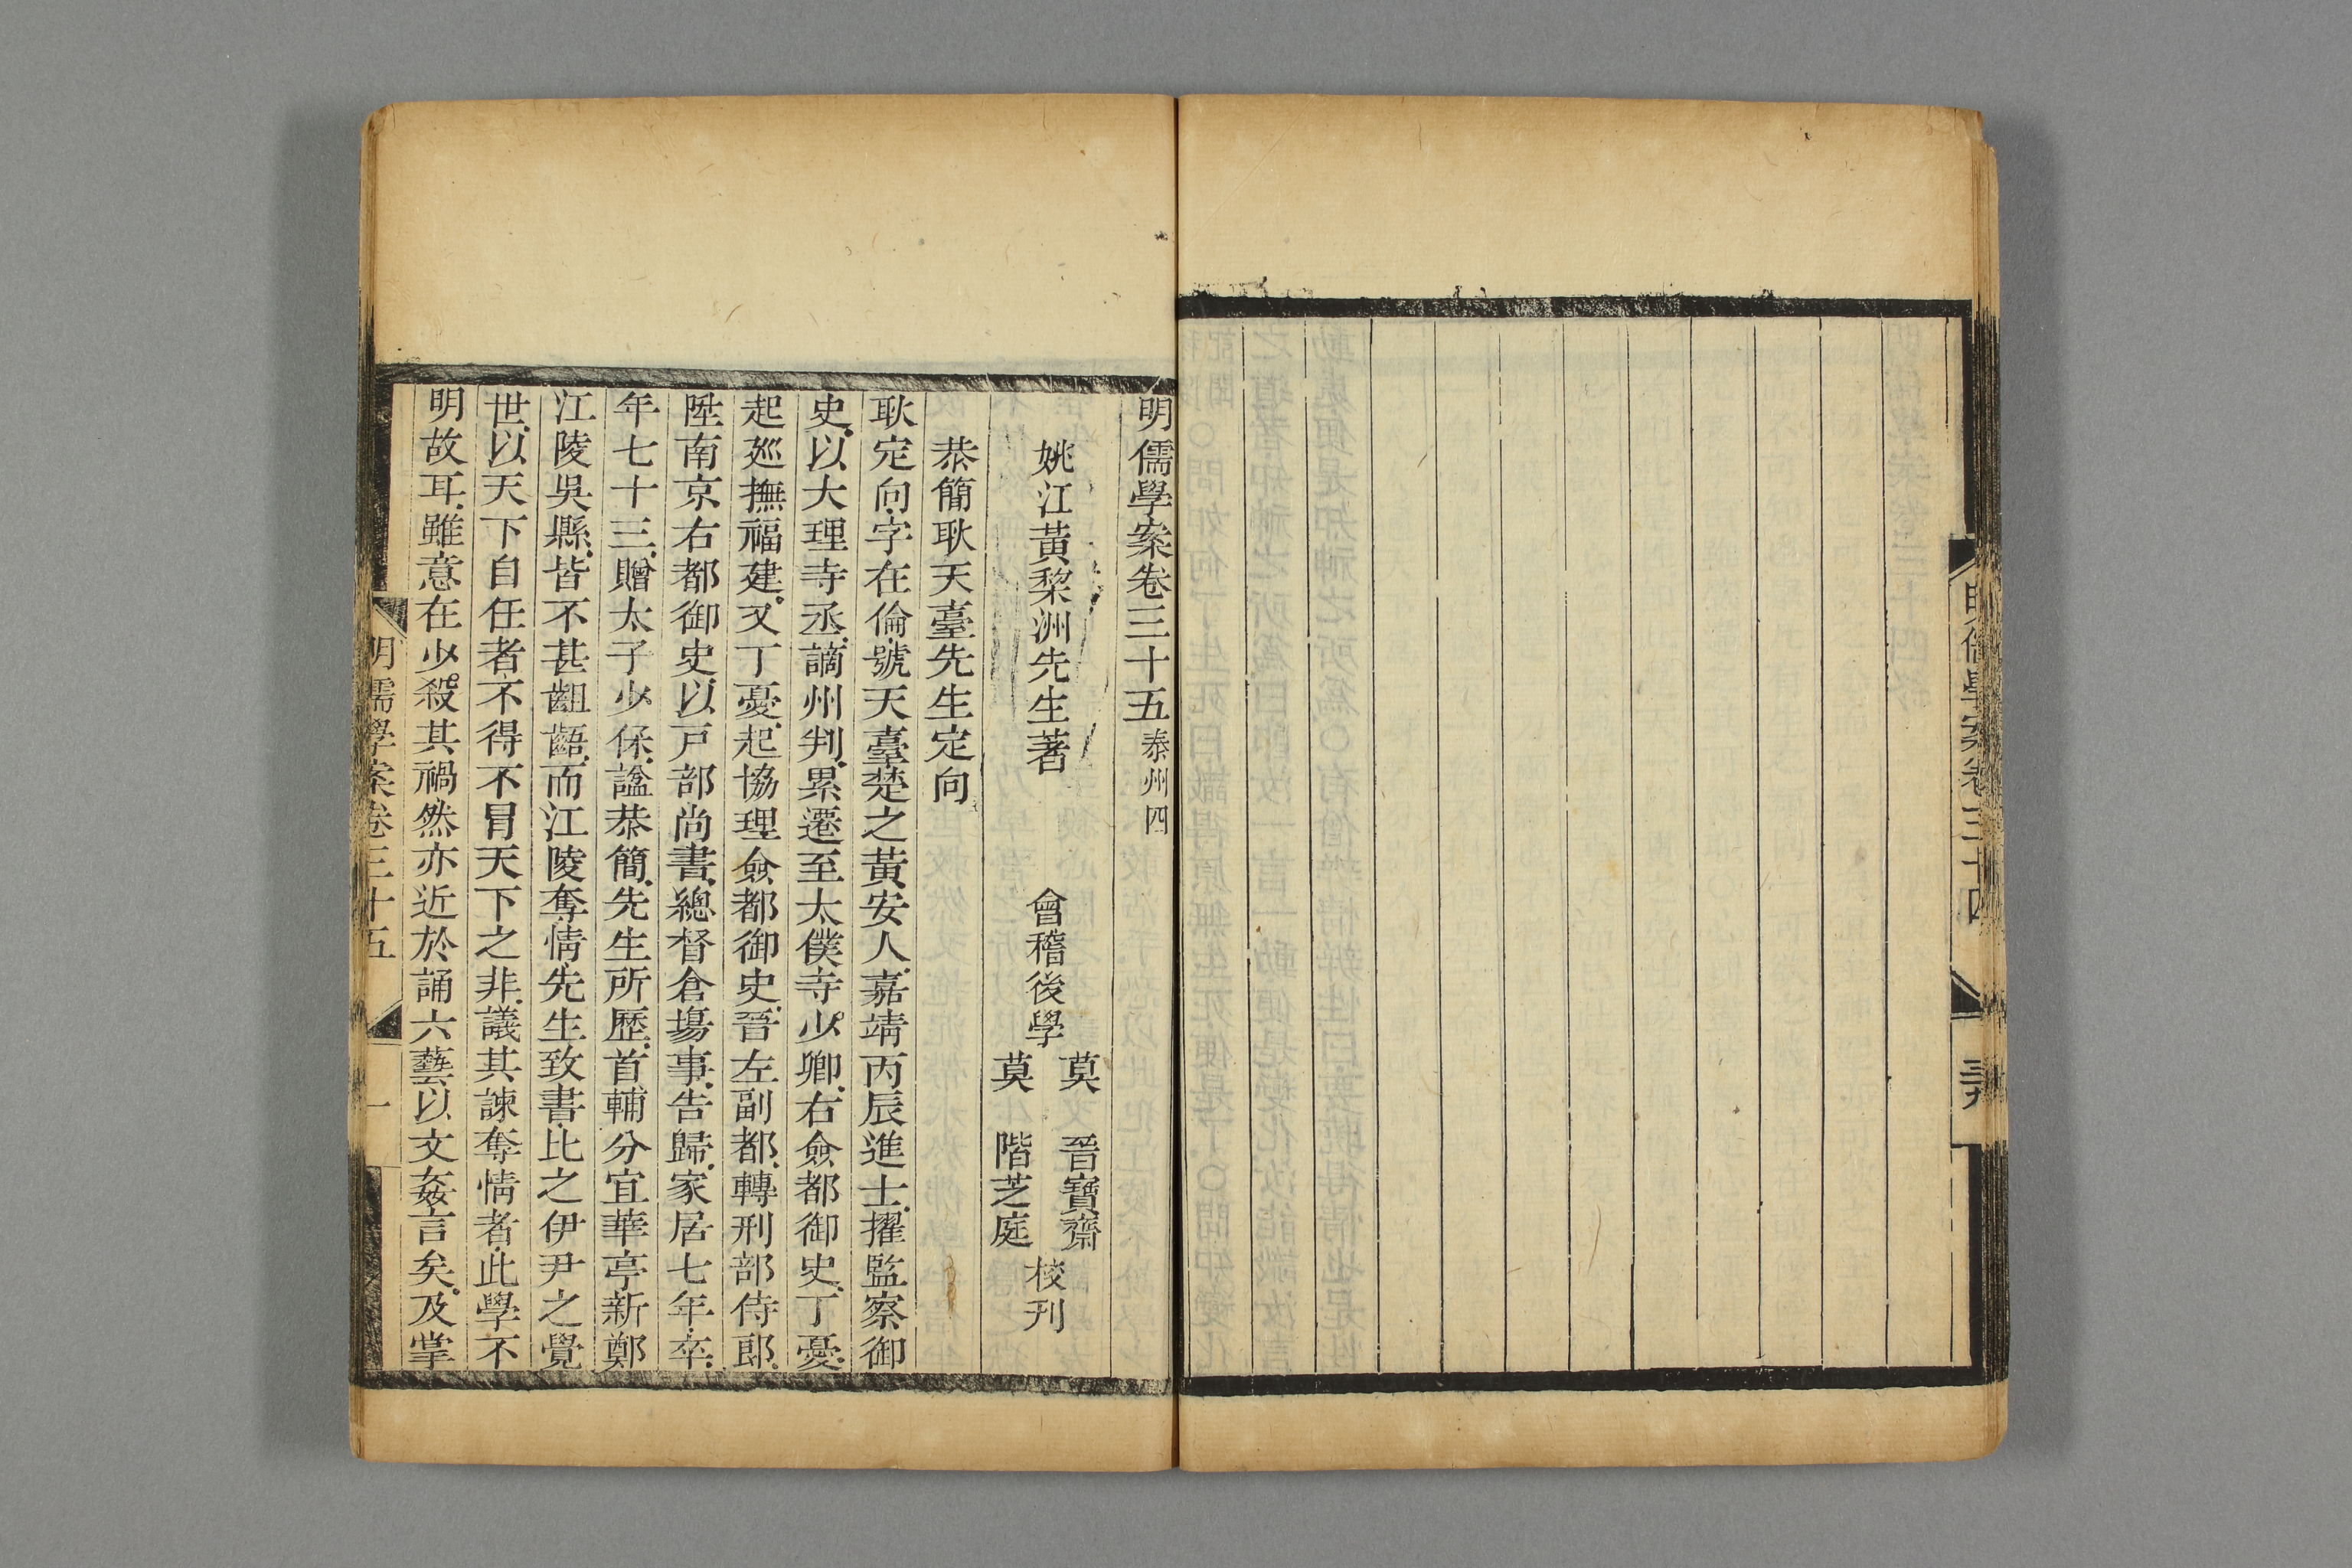 明儒學案卷三十四
明儒學案卷三十五 泰州四
姚江黃棃洲先生著 會稽後學 莫晉寶齋 莫階芝庭 校刊
恭簡耿天臺先生定向
耿定向字在倫號天臺楚之黃安人嘉靖丙辰進士擢監察御
史以大理寺丞謫州判累遷至太僕寺少卿右僉都御史丁憂
起廵撫福建又丁憂起協理僉都御史晉左副都轉刑部侍郎
陞南京右都御史以戸部尚書總督倉塲事告歸家居七年卒
年七十三贈太子少保諡恭簡先生所歷首輔分宜華亭新鄭
江陵吳縣皆不甚齟齬而江陵奪情先生致書比之伊尹之覺
世以天下自任者不得不冒天下之非議其諫奪情者此學不
明故耳雖意在少殺其禍然亦近於誦六藝以文姦言矣及掌
明儒學案卷三十五
一